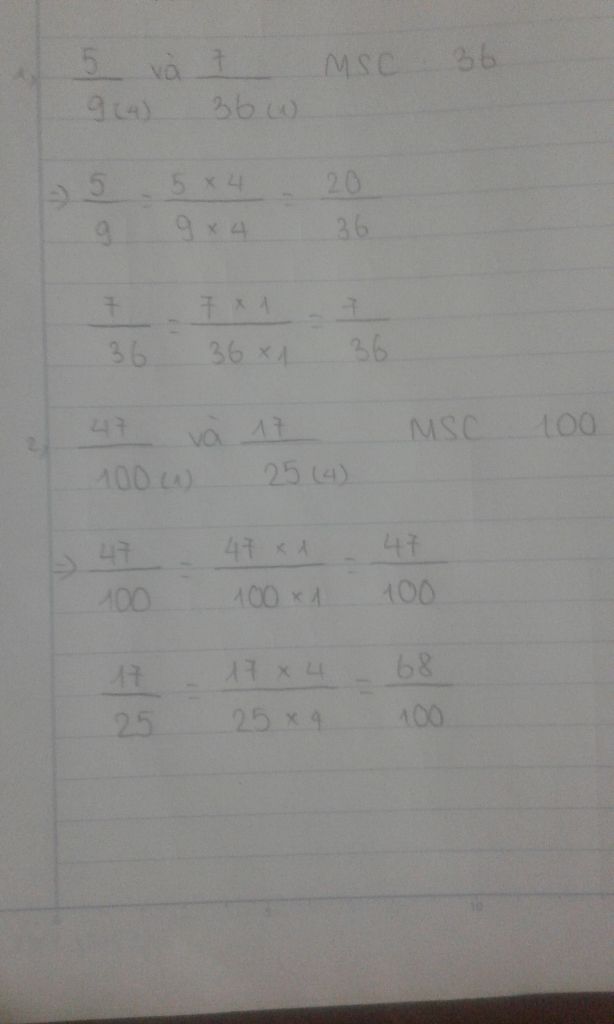 1) 5/9(4) và 7/36(1) MSC : 36
=> 5/9 = 5 × 4/9 × 4 = 20/36
7/36 = 7 × 1/36 × 1 = 7/36
2) 47/100(1) và 17/25(4) MSC : 100
=> 47/100 = 47 × 1/100 × 1 = 47/100
17/25 = 17 × 4/25 × 4 = 68/100